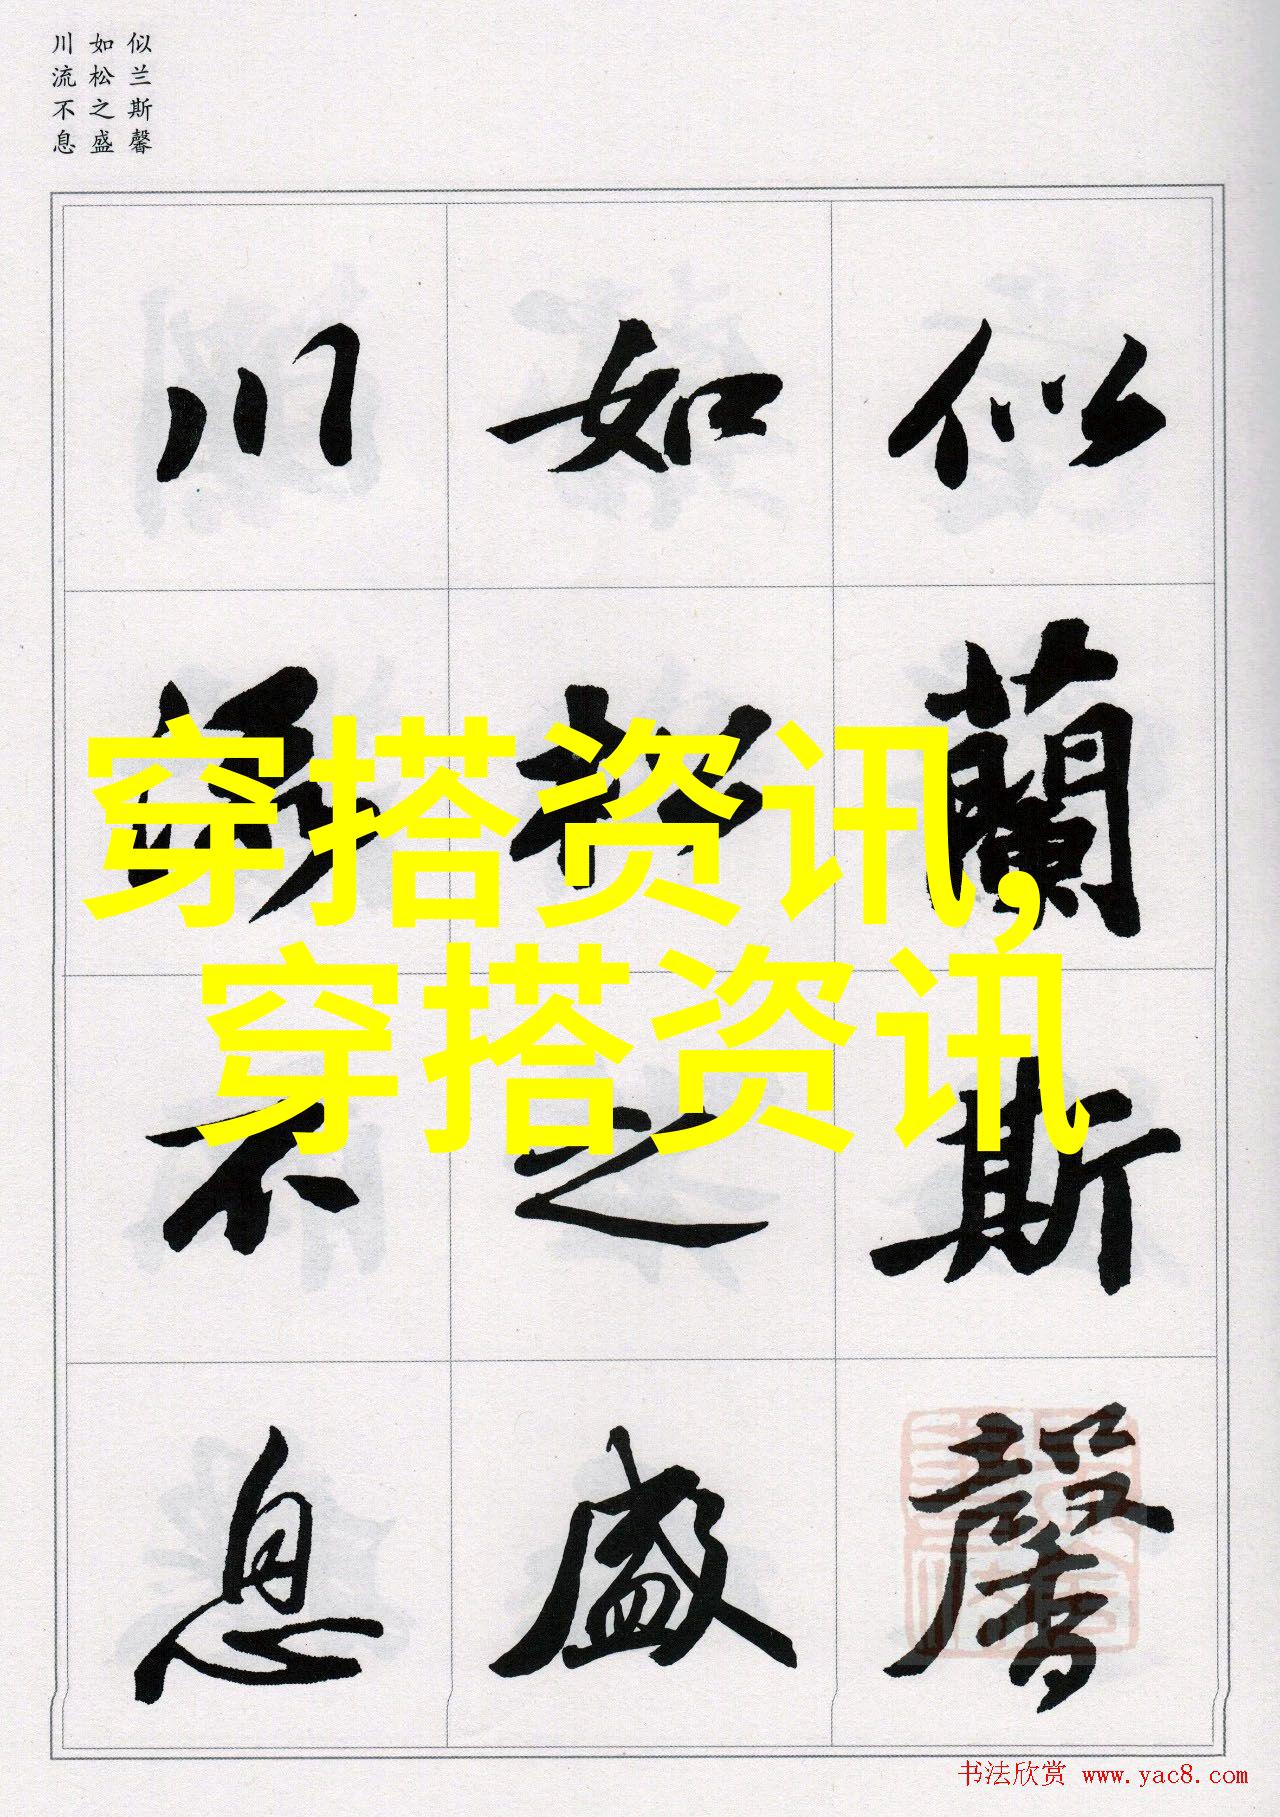 似兰斯馨
如松之盛
川流不息
似蘭斯馨
如松之盛
川流不息
穿搭资讯,
穿搭资讯
书法欣赏 www.yac8.com